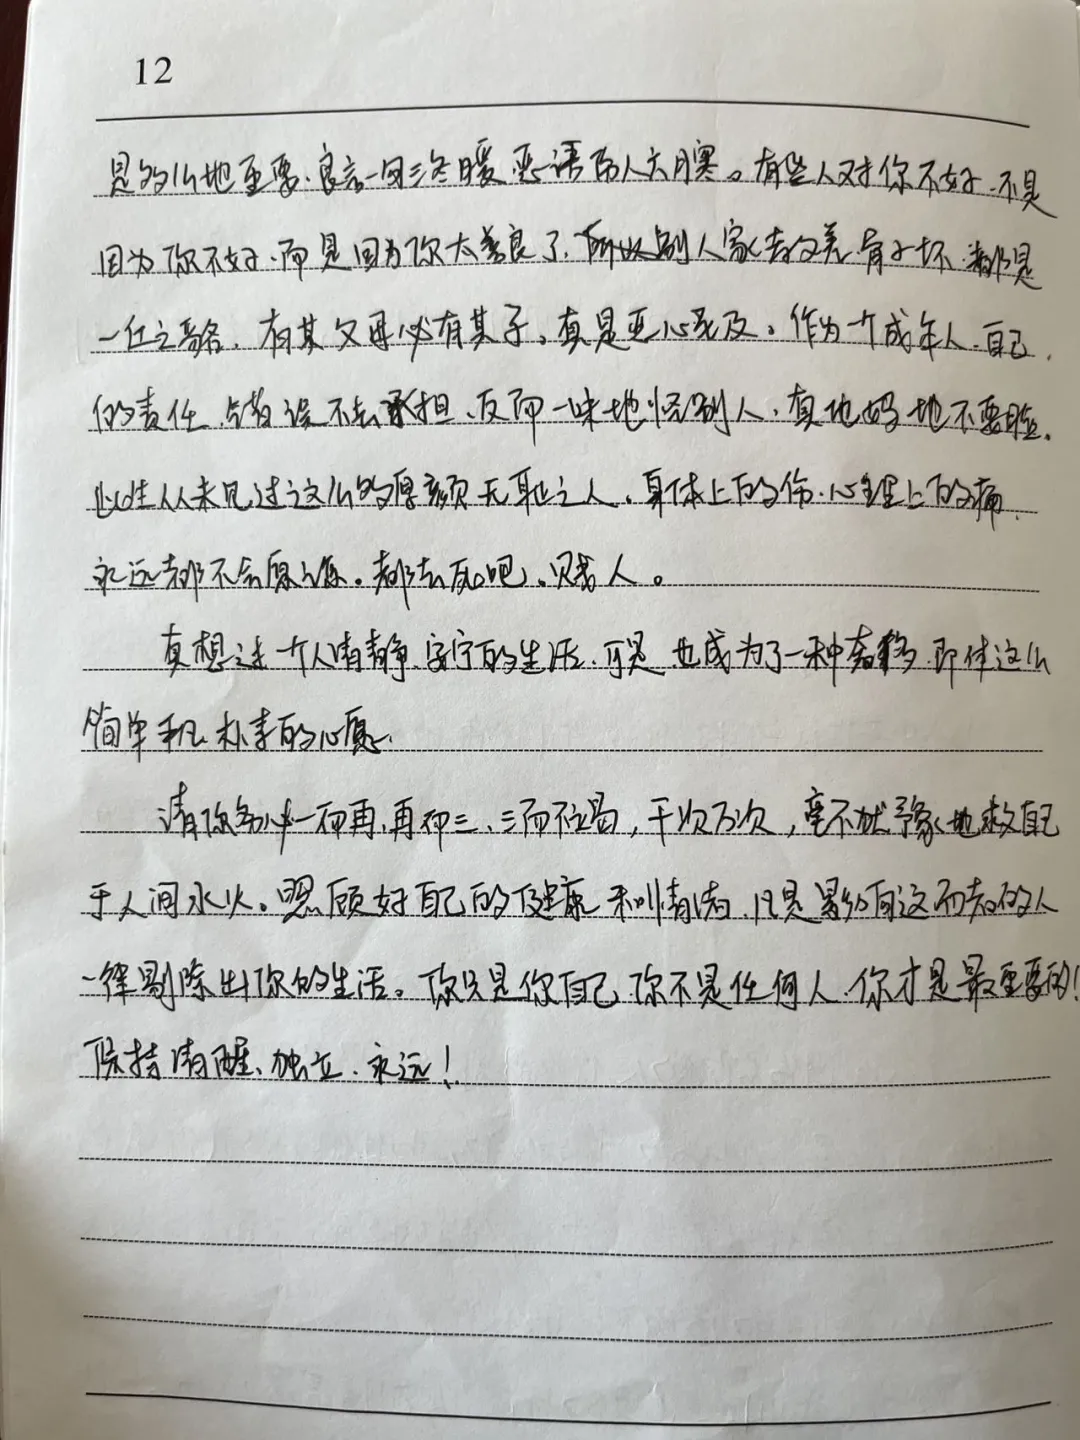 12
是多么地重要.良言一句三冬暖.恶语伤人六月寒。有些人对你不好.不是
因为你不好.而是因为你太善良了.所以别人家去父羌有子坏.都是
一丘之貉.有其父母必有其子。真是恶心死及。作为一个成年人.自己
的责任、错误不去承担、反而一味地怪别人.真他妈地不要脸.
此生从未见过这么的厚颜无耻之人.身体上的伤.心理上的痛.
永远都不会原谅.都去死吧.贱人。
真想过一个人清静.安宁的生活.可是也成为了一种奢侈.即使这么
简单平凡.朴素的心愿.
请你务必一而再.再而三、三而不竭,千次万次,毫不犹豫地救自己
于人间水火。照顾好自己的健康和情绪.凡是影响这两者的人
一律剔除出你的生活。你只是你自己.你不是任何人.你才是最重要的!
保持清醒、独立.永远!